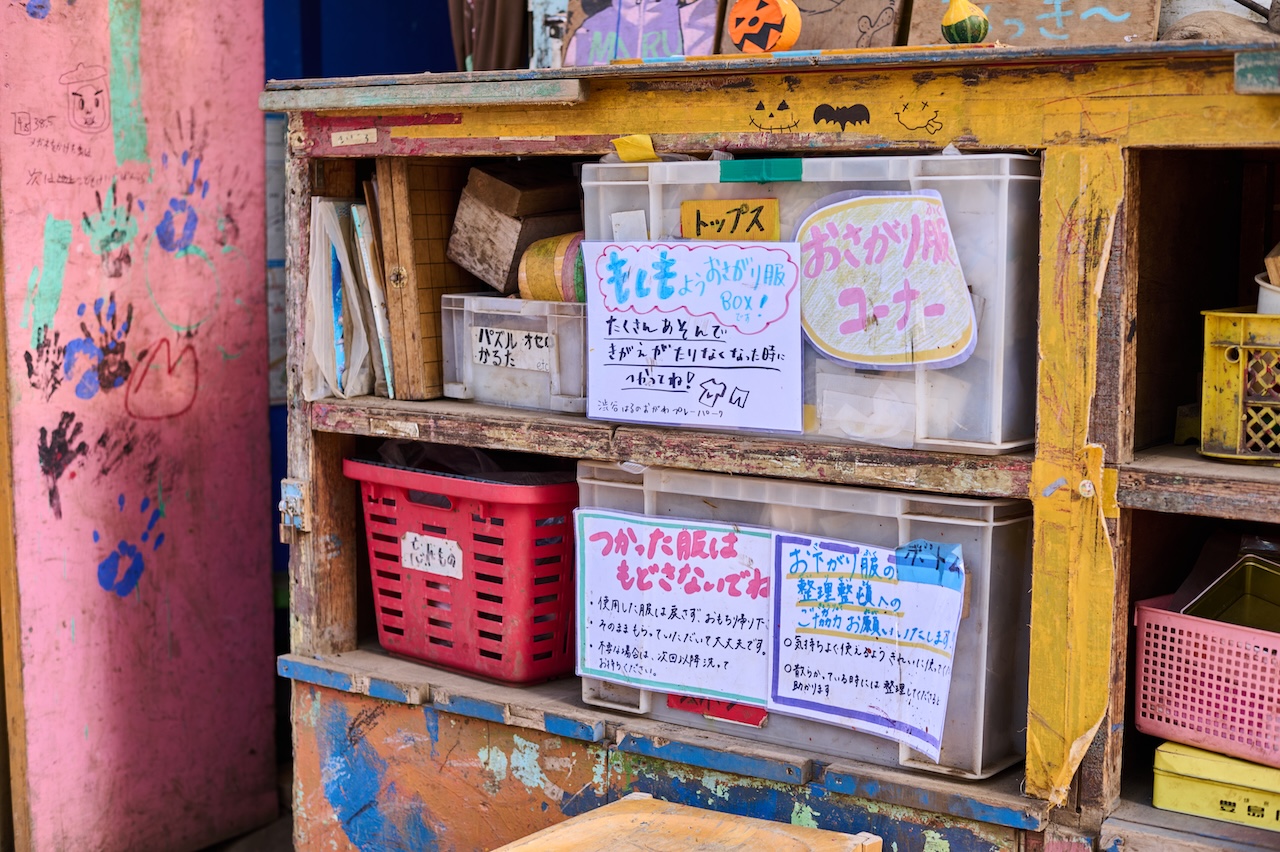 MARU
38.5
トップス
おさがり服
コーナー
もしもようおさがり服
BOX!
です
たくさんあそんで
きがえがたりなくなった時に
つかってね!
渋谷はるのおがわプレーパーク
パズル オセロ
かるた etc
つかった服は
もどさないでね
・使用した服は戻さず、おもち帰り下
・そのままもらっていただいて大丈夫です。
・不要な場合は、次回以降洗って
お持ちください。
おさがり服の
ボトム
整理整頓への
ご協力お願いいたします
○気持ちよく使えるようきれいに使って
○散らかっている時には整理してくださると
助かります
豊島